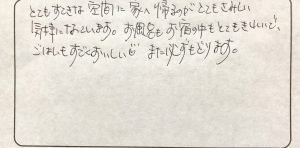 とてもすてきな空間に家へ帰るのがとてもさみしい
気持になっています。お風呂もお宿の中もとてもきれいで、
ごはんもすごくおいしいし また必ずもどります。